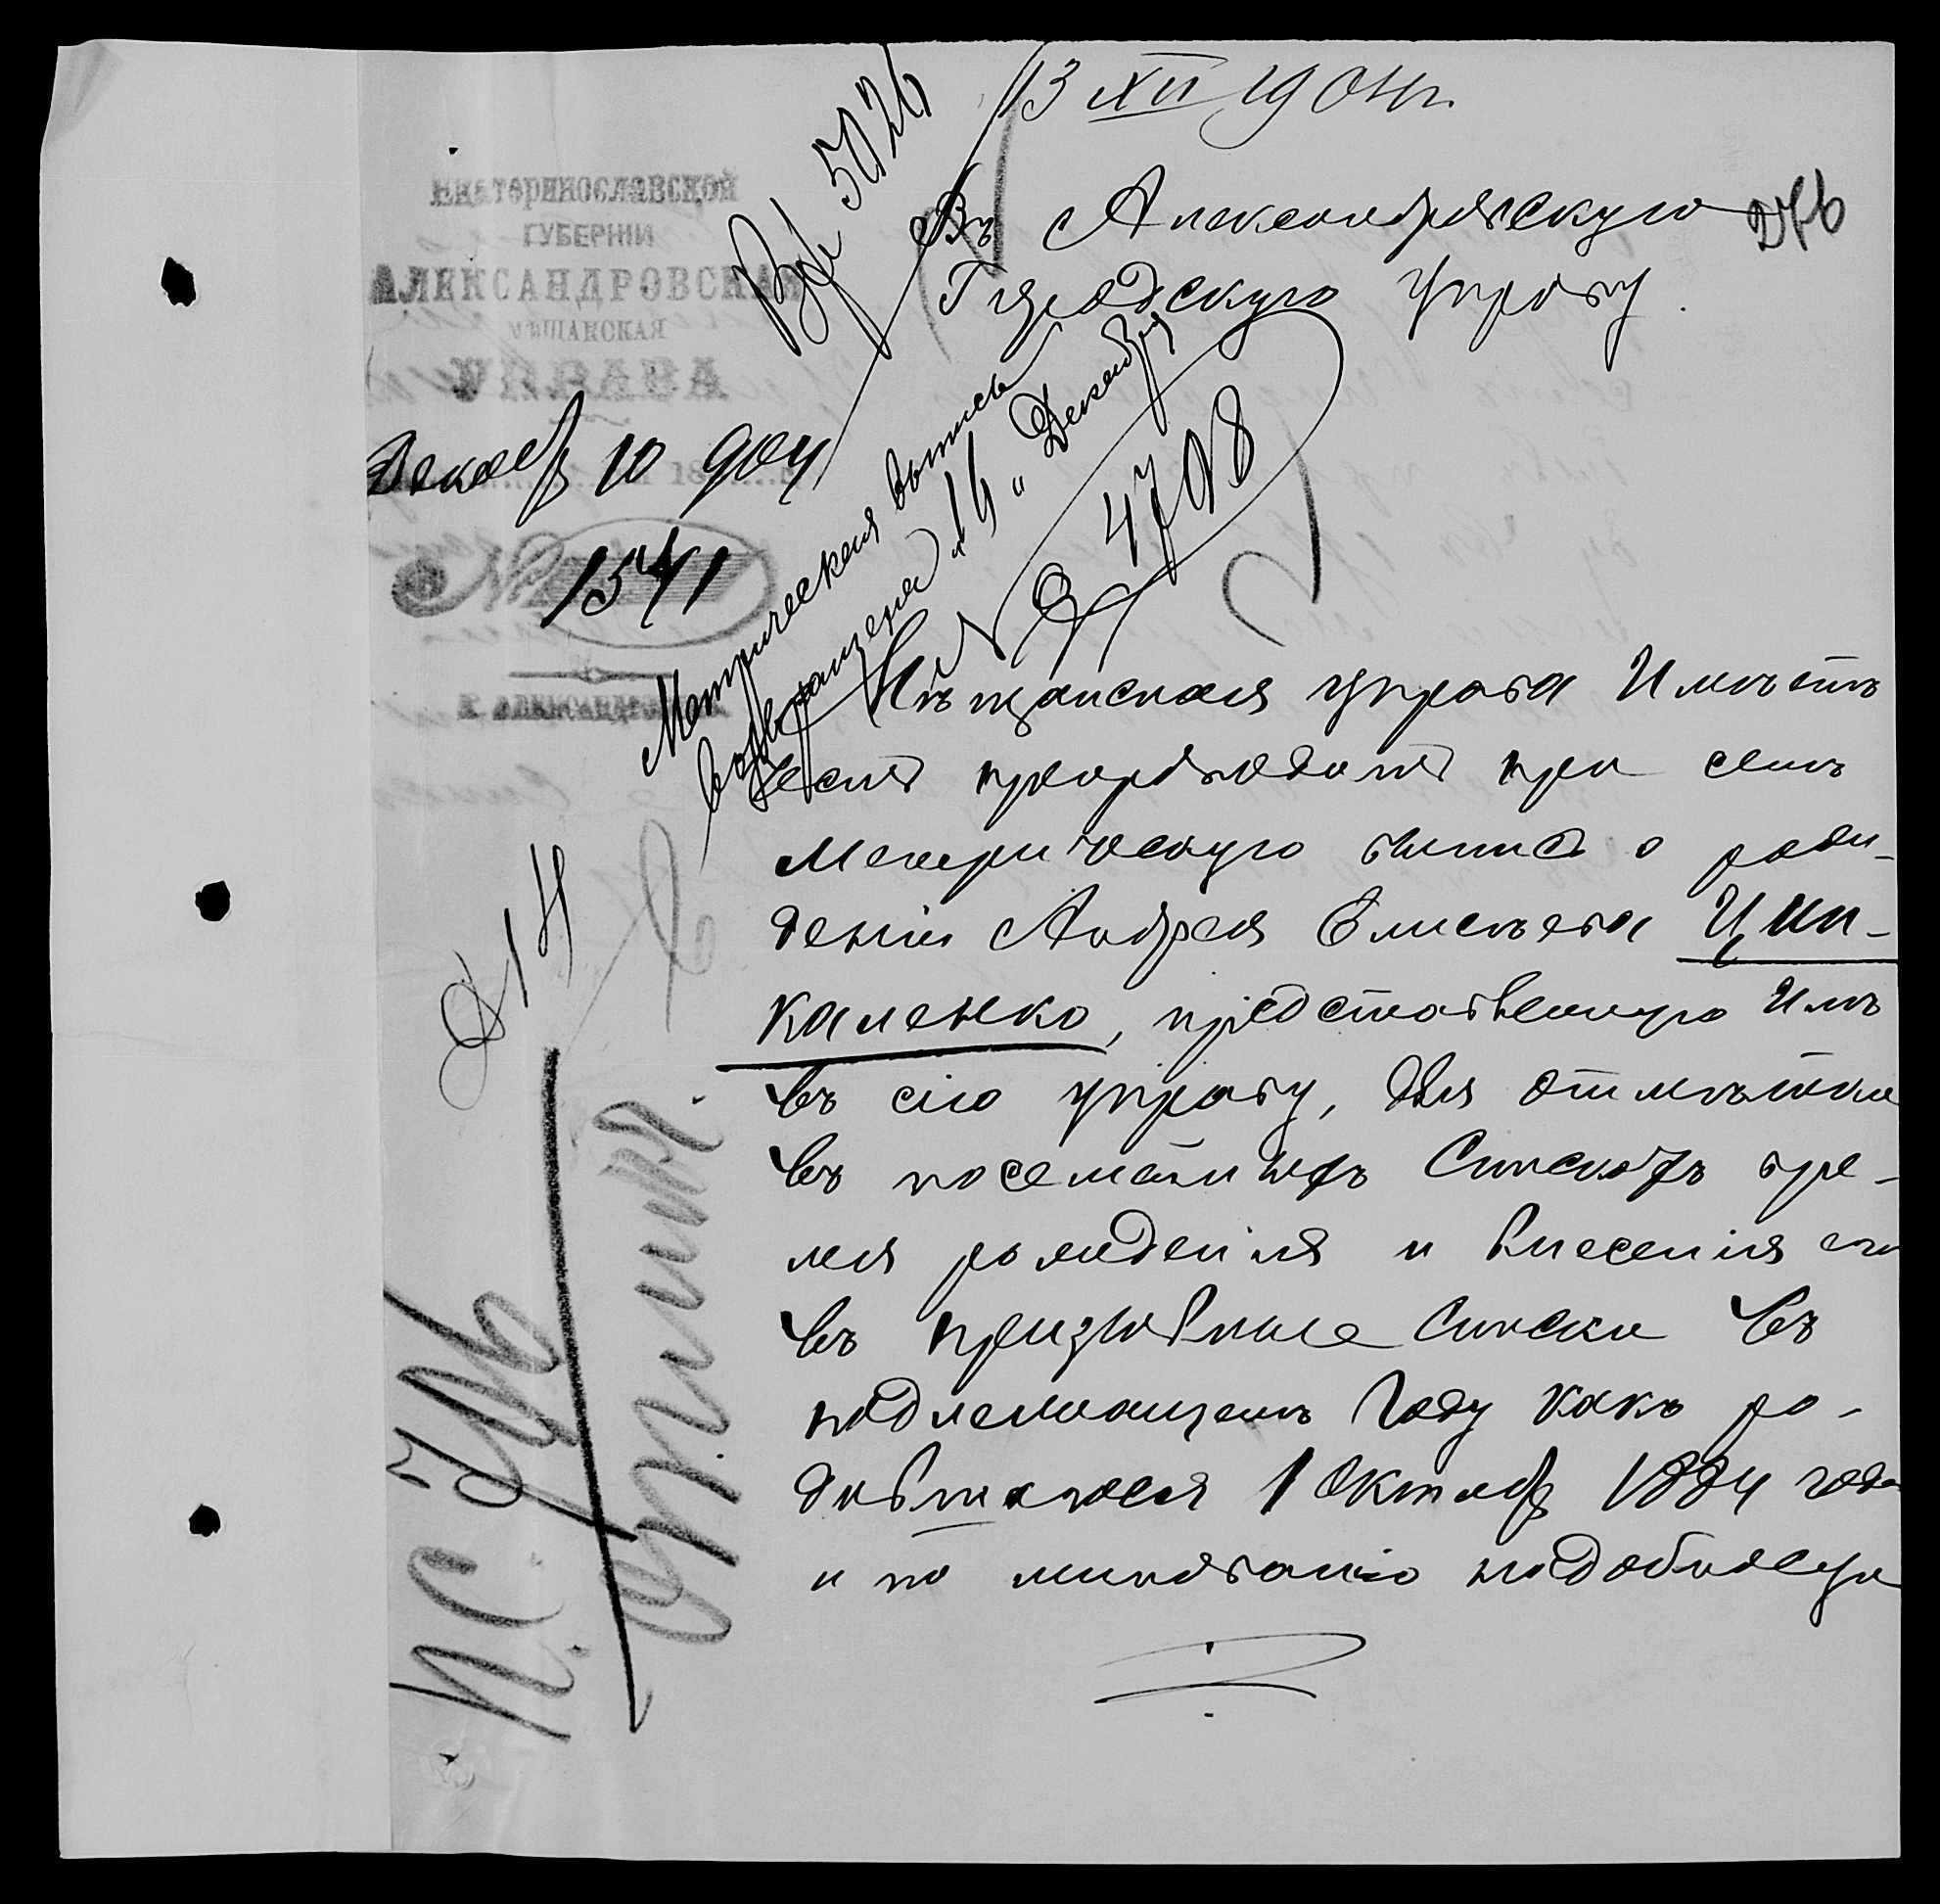 13 XII 1904 г.
Вх 5026
Екатеринославской
ГУБЕРНІИ
АЛЕКСАНДРОВСКАЯ
МѢЩАНСКАЯ
УПРАВА
Декабр 10 904
18
№ 1541
Г. АЛЕКСАНДРОВСК
Въ Александровскую
Городскую Управу.
Метрическая выпись
возвращена „14" Декабря
№ 4708
Мѣщанская управа имѣетъ
честь препроводить при семъ
Метрическую выпись о рож-
деніи Андрея Елисѣева Цы-
каленко, представленную имъ
въ сію управу, для отмѣтки
въ посемейныхъ спискахъ вре-
мя рожденія и внесенія его
въ призывные списки въ
подлежащемъ году какъ ро-
дившагося 1 Октябр 1884 года
и по минованію надобности